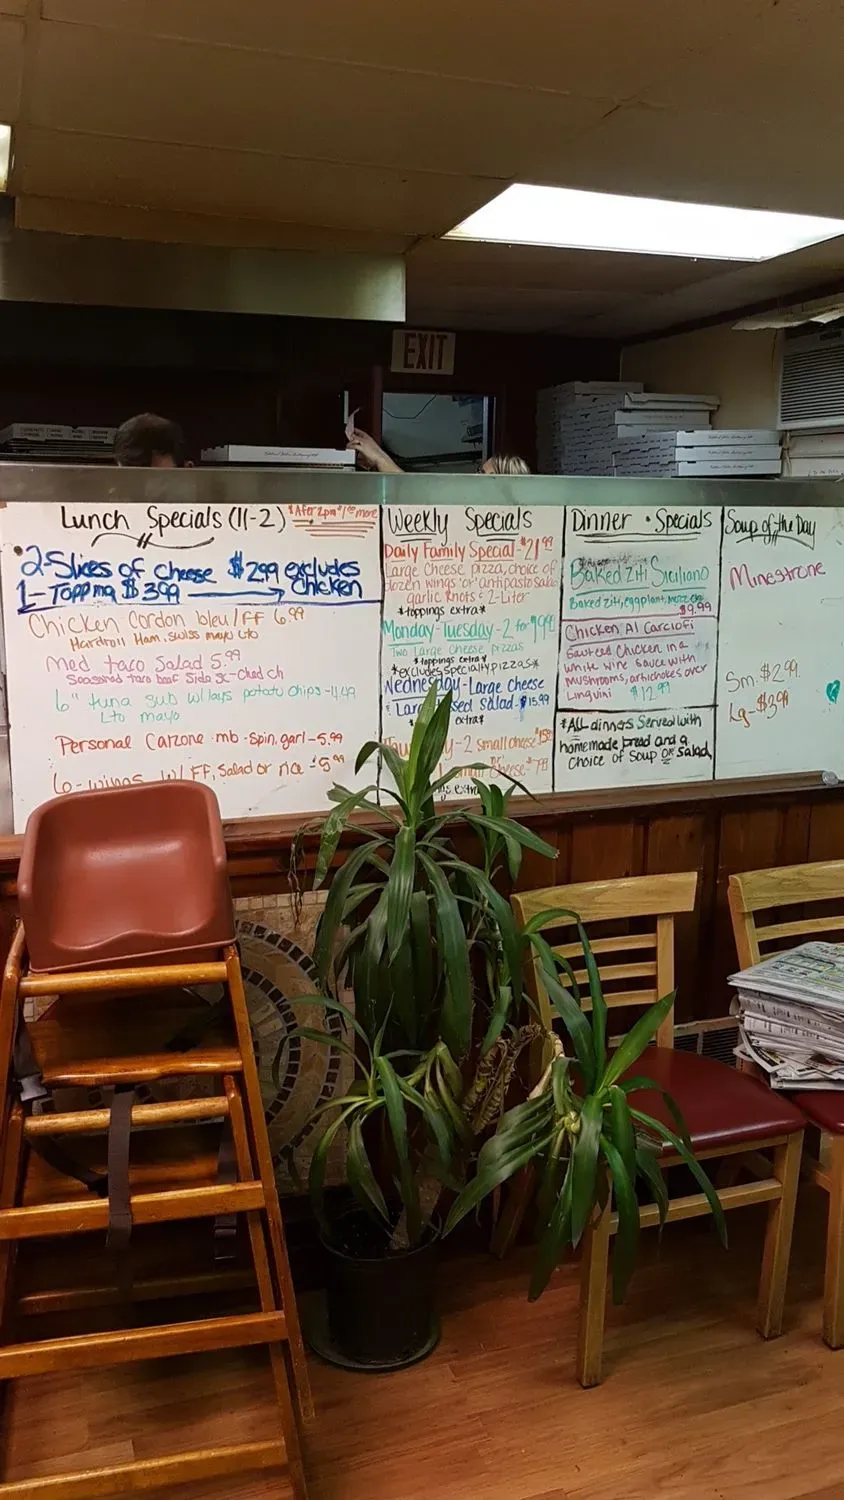 EXIT
Lunch Specials (11-2)
*After 2pm $1.00 more
2-Slices of cheese $2.99 excludes
1-Topping $3.99 chicken
Chicken Cordon bleu/FF 6.99
Hardroll Ham, swiss mayo Lto
Med taco Salad 5.99
Seasoned taco beef Side SC-Ched ch
6" tuna sub w/lays potato chips-4.49
Lto mayo
Personal Calzone-mb-spin, garl-5.99
6-wings w/ FF, Salad or rice-$5.99
Weekly Specials
Daily Family Special-$21.99
Large Cheese pizza, choice of
dozen wings "or" antipasto salad
garlic knots & 2-Liter
*toppings extra*
Monday-Tuesday-2 for $19.99
Two Large cheese pizzas
*toppings extra*
*excludes specialty pizzas*
Wednesday-Large cheese
& Large Salad-$15.99
extra*
-2 small cheese
small cheese-$7.99
Dinner • Specials
Baked Ziti Siciliano
Baked ziti, eggplant, mozz
$9.99
Chicken Al Carciofi
Sauteed Chicken in a
white wine Sauce with
mushrooms, artichokes over
Linguini $12.99
*ALL dinners Served with
homemade bread and a
choice of Soup OR salad
Soup of the Day
Minestrone
Sm. $2.99
Lg-$3.99